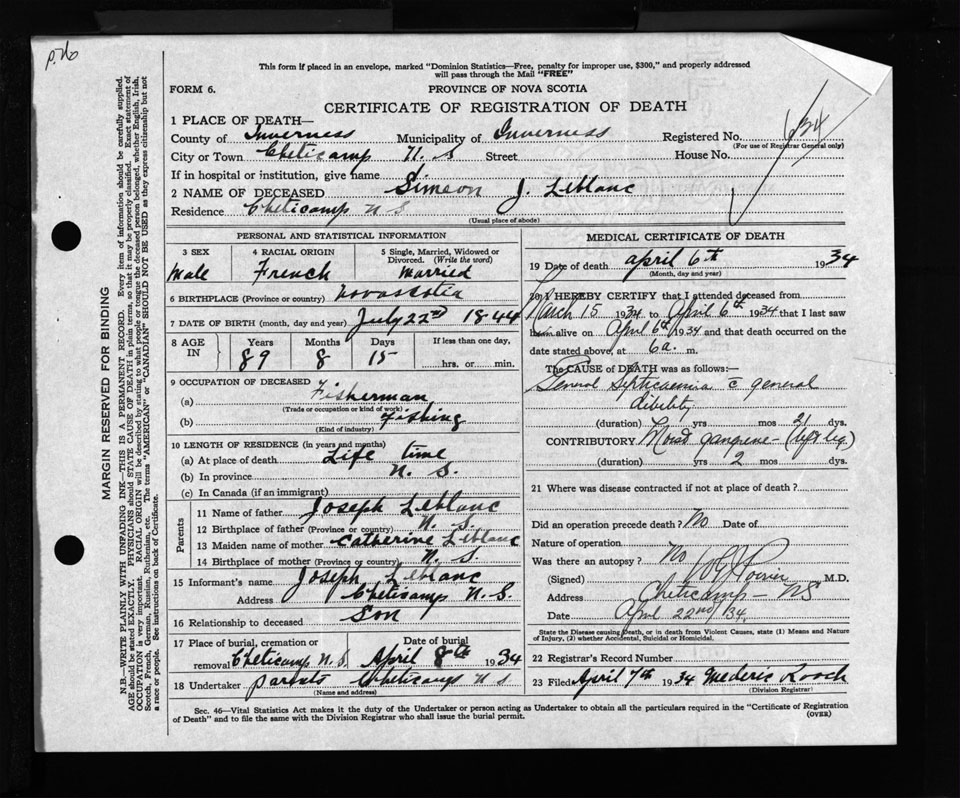 P. 26
This form if placed in an envelope, marked "Dominion Statistics—Free, penalty for improper use, $300," and properly addressed
will pass through the Mail "FREE"
FORM 6.
PROVINCE OF NOVA SCOTIA
CERTIFICATE OF REGISTRATION OF DEATH
1 PLACE OF DEATH—
County of Inverness Municipality of Inverness Registered No. 634
(For use of Registrar General only)
City or Town Cheticamp N. S Street House No.
If in hospital or institution, give name
2 NAME OF DECEASED Simeon J. Leblanc
Residence Cheticamp N S
(Usual place of abode)
PERSONAL AND STATISTICAL INFORMATION
3 SEX 4 RACIAL ORIGIN 5 Single, Married, Widowed or
Divorced. (Write the word)
Male French Married
6 BIRTHPLACE (Province or country) Novascotia
7 DATE OF BIRTH (month, day and year) July 22nd 1844
8 AGE IN Years Months Days If less than one day,
89 8 15 hrs. or min.
9 OCCUPATION OF DECEASED
(a) Fisherman
(Trade or occupation or kind of work)
(b) fishing
(Kind of industry)
10 LENGTH OF RESIDENCE (in years and months)
(a) At place of death Life time
(b) In province N. S.
(c) In Canada (if an immigrant)
Parents
11 Name of father Joseph Leblanc
12 Birthplace of father (Province or country) N. S.
13 Maiden name of mother Catherine Leblanc
14 Birthplace of mother (Province or country) N. S.
15 Informant's name Joseph Leblanc
Address Cheticamp N. S.
16 Relationship to deceased Son
17 Place of burial, cremation or Date of burial
removal Cheticamp N. S. April 8th 1934
18 Undertaker Cheticamp N S
(Name and address)
MEDICAL CERTIFICATE OF DEATH
19 Date of death April 6th 1934
(Month, day and year)
20 I HEREBY CERTIFY that I attended deceased from
March 15 1934 to April 6th 1934 that I last saw
him alive on April 6th 1934 and that death occurred on
date stated above, at 6 a. m.
The CAUSE of DEATH was as follows:—
General Septicaemia c general
dibility
(duration) yrs mos 21 dys.
CONTRIBUTORY gangrene (left leg)
(duration) yrs 2 mos dys.
21 Where was disease contracted if not at place of death?
Did an operation precede death? No Date of
Nature of operation
Was there an autopsy? No
(Signed) Poirier M.D.
Address Cheticamp — NS
Date April 22nd 34.
State the Disease causing Death, or in death from Violent Causes, state (1) Means and Nature
of Injury, (2) whether Accidental, Suicidal or Homicidal.
22 Registrar's Record Number
23 Filed April 7th 1934 Mederic Roach
(Division Registrar)
Sec. 46—Vital Statistics Act makes it the duty of the Undertaker or person acting as Undertaker to obtain all the particulars required in the "Certificate of Registration
of Death" and to file the same with the Division Registrar who shall issue the burial permit.
(OVER)
MARGIN RESERVED FOR BINDING
N.B.—WRITE PLAINLY WITH UNFADING INK—THIS IS A PERMANENT RECORD. Every item of information should be carefully supplied.
AGE should be stated EXACTLY. PHYSICIANS should STATE CAUSE OF DEATH in plain terms, so that it may be properly classified. Exact statement of
OCCUPATION is very important. RACIAL ORIGIN will be described by stating to what people or tongue the deceased person belonged, whether English, Irish,
Scotch, French, German, Russian, Ruthenian, etc. The terms "AMERICAN" or "CANADIAN" SHOULD NOT BE USED as they express citizenship but not
a race or people. See instructions on back of Certificate.